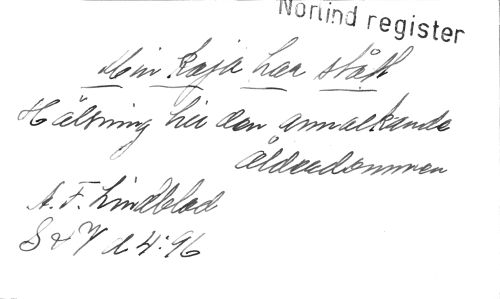 Norlind register
Min kaja har stått
Hälsning hei den annalkande
ålderdommen
A. F. Lindblad
S & V d 4:96